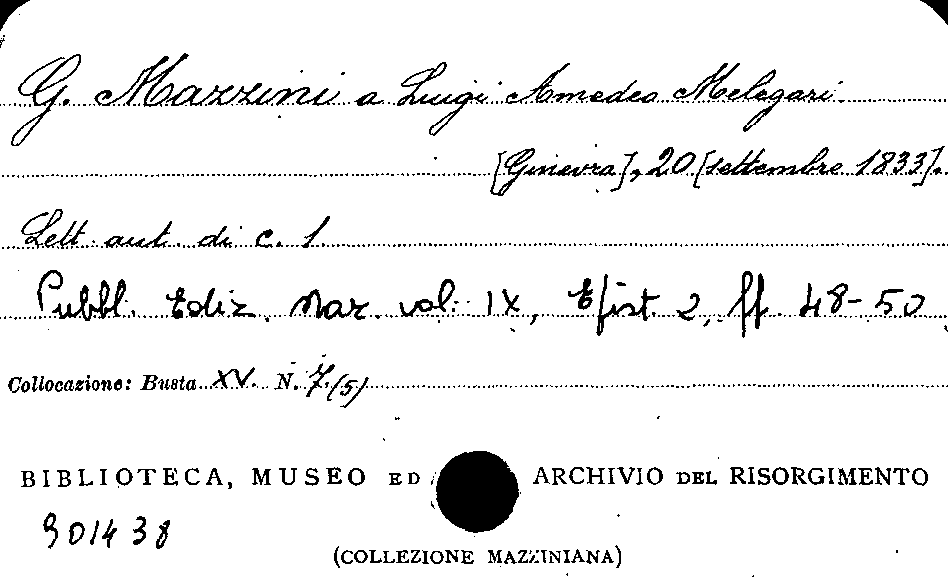 G. Mazzini a Luigi Amedeo Melegari
[Ginevra], 20 [settembre 1833].
Lett. aut. di c. 1
Pubbl. Ediz. Naz. vol. IX, Epist. 2, pp. 48-50
Collocazione: Busta XV. N. 7.(5)
BIBLIOTECA, MUSEO ED ARCHIVIO DEL RISORGIMENTO
901438
(COLLEZIONE MAZZINIANA)